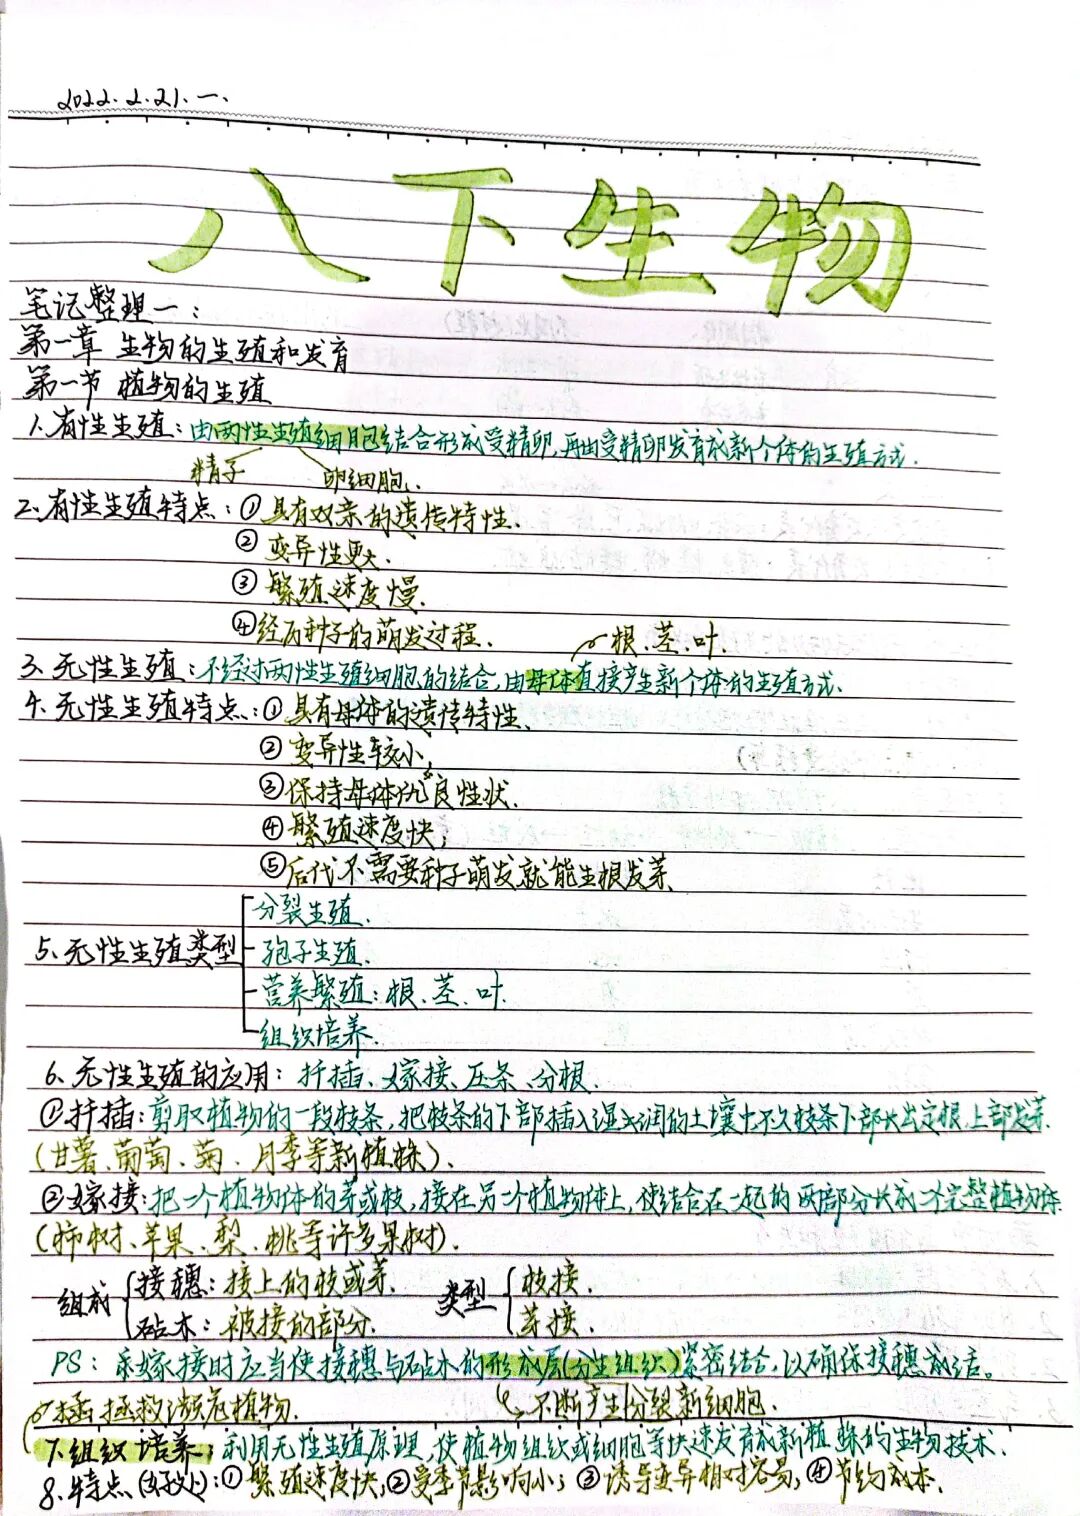 2022.2.21.一.
八下生物
笔记整理一:
第一章 生物的生殖和发育
第一节 植物的生殖
1.有性生殖:由两性生殖细胞结合形成受精卵,再由受精卵发育成新个体的生殖方式.
精子 卵细胞.
2.有性生殖特点:①具有双亲的遗传特性.
②变异性更大.
③繁殖速度慢.
④经历种子的萌发过程.
根.茎.叶.
3.无性生殖:不经过两性生殖细胞的结合,由母体直接产生新个体的生殖方式.
4.无性生殖特点:①具有母体的遗传特性.
②变异性较小,
③保持母体优良性状.
④繁殖速度快;
⑤后代不需要种子萌发就能生根发芽
分裂生殖.
5.无性生殖类型 孢子生殖.
营养繁殖:根.茎.叶.
组织培养.
6.无性生殖的应用:扦插、嫁接、压条、分根.
①扦插:剪取植物的一段枝条,把枝条的下部插入湿润的土壤中不久枝条下部长出定根,上部发芽
(甘薯、葡萄、菊、月季等新植株).
②嫁接:把一个植物体的芽或枝,接在另一个植物体上,使结合在一起的两部分长成一个完整植物体
(柿树、苹果、梨、桃等许多果树).
组成 接穗:接上的枝或芽. 类型 枝接.
砧木:被接的部分. 芽接.
PS:嫁接时应当使接穗与砧木的形成层(分生组织)紧密结合,以确保接穗成活。
拯救濒危植物. 不断产生分裂新细胞.
7.组织培养:利用无性生殖原理,使植物组织或细胞等快速发育成新植株的生物技术.
8.特点(好处):①繁殖速度快;②受季节影响小;③诱导变异相对容易;④节约成本.